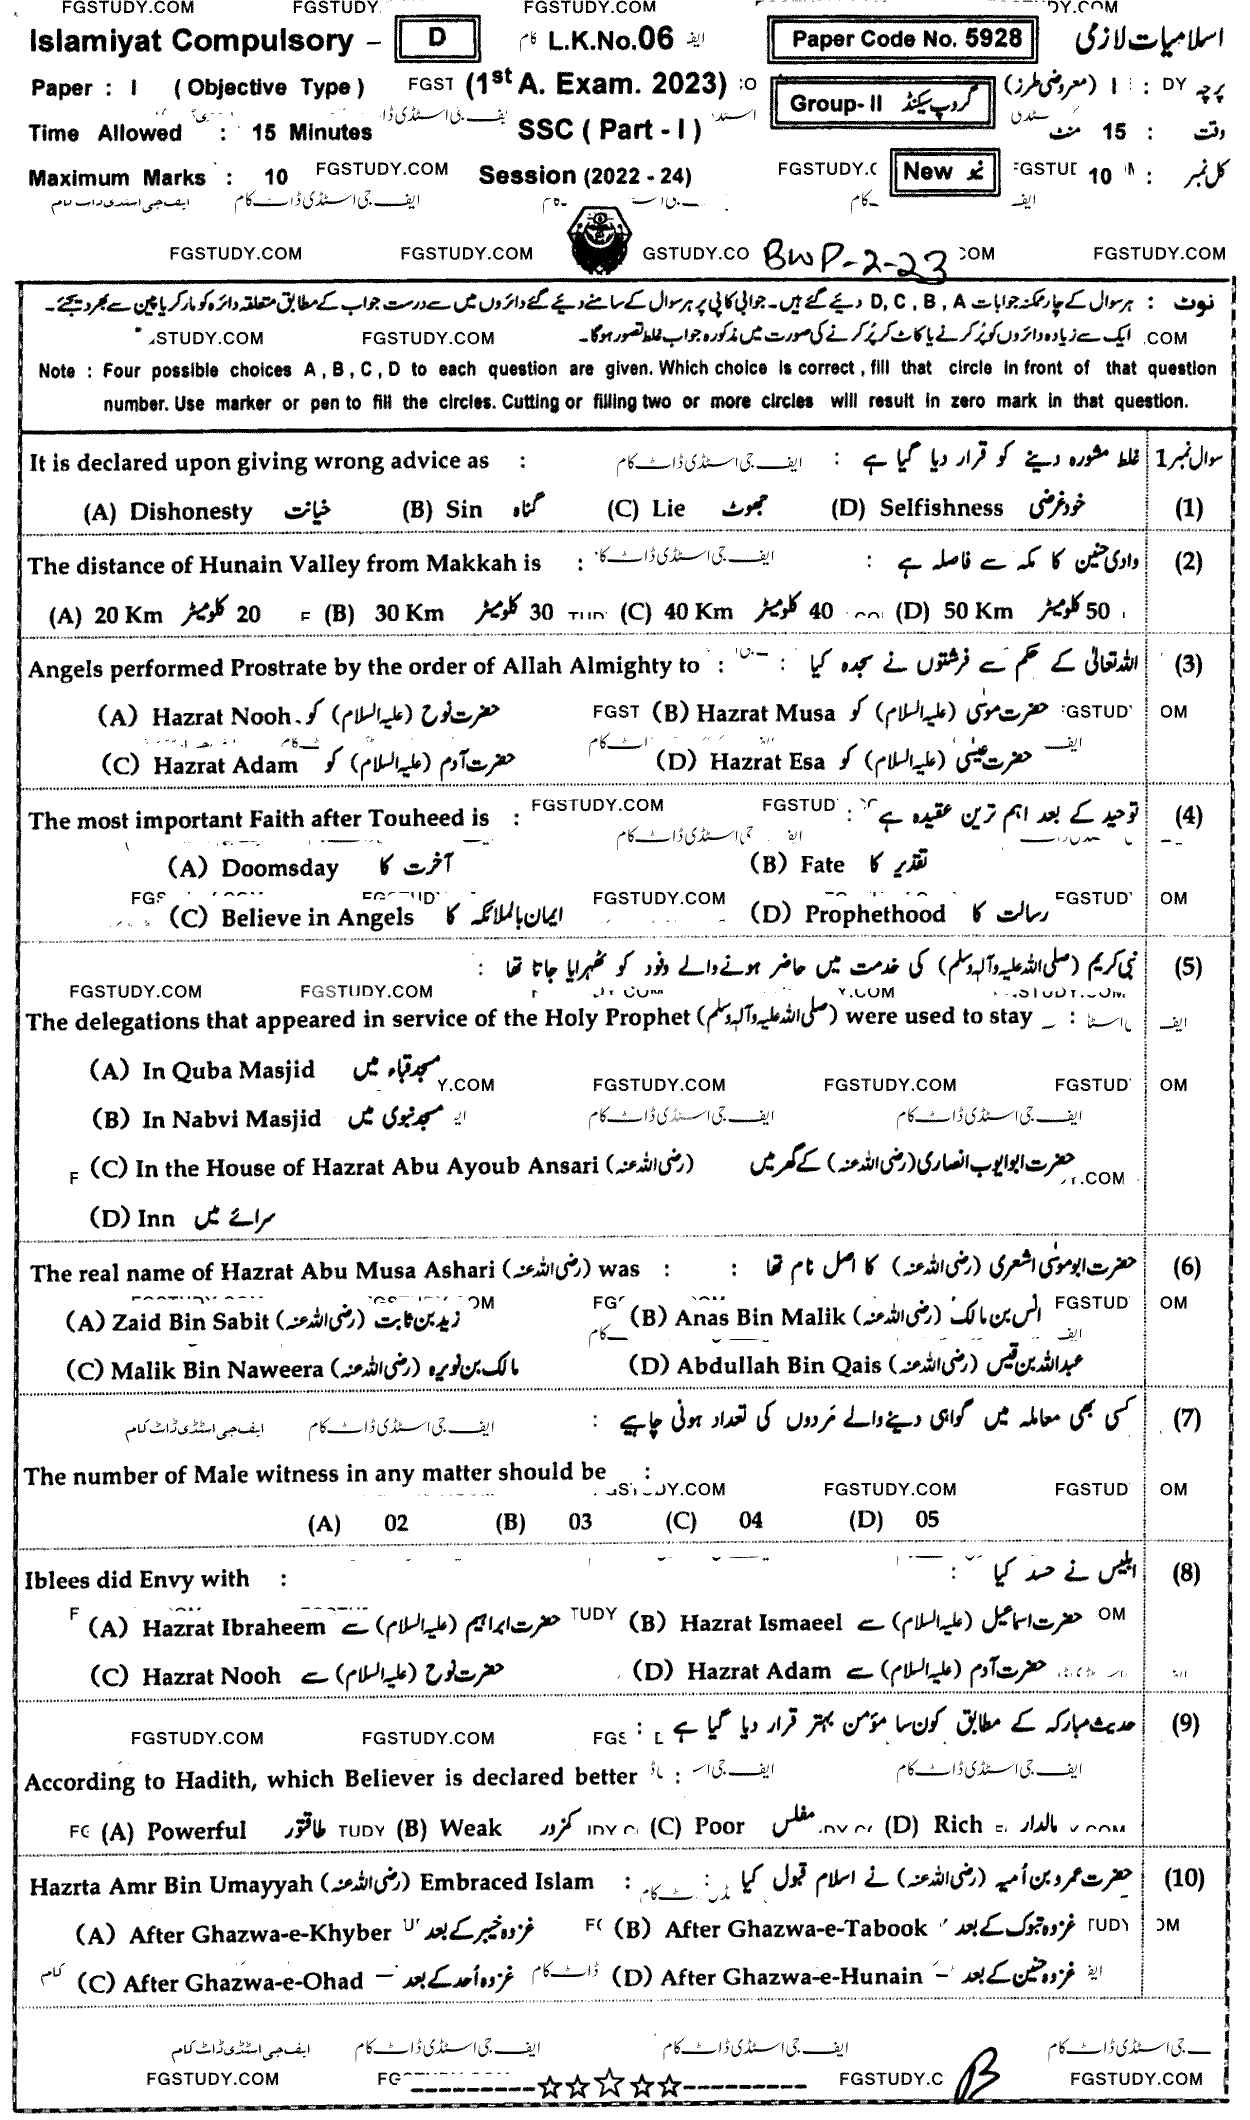 FGSTUDY.COM FGSTUDY. FGSTUDY.COM DY.COM
Islamiyat Compulsory – D کام L.K.No.06 ایف Paper Code No. 5928 اسلامیات لازمی
Paper : I ( Objective Type ) FGST (1st A. Exam. 2023) Group- II گروپ سیکنڈ پرچہ : I (معروضی طرز)
Time Allowed : 15 Minutes SSC ( Part - I ) وقت : 15 منٹ
Maximum Marks : 10 FGSTUDY.COM Session (2022 - 24) FGSTUDY.C New نیو کل نمبر : 10
ایف جی اسٹڈی ڈاٹ کام
FGSTUDY.COM FGSTUDY.COM GSTUDY.CO BWP-2-23 COM FGSTUDY.COM
نوٹ : ہر سوال کے چار ممکنہ جوابات D, C, B, A دیئے گئے ہیں۔ جوابی کاپی پر ہر سوال کے سامنے دیئے گئے دائروں میں سے درست جواب کے مطابق متعلقہ دائرہ کو مارکر یا پین سے بھر دیجئے۔
ایک سے زیادہ دائروں کو پُر کرنے یا کاٹ کر پُر کرنے کی صورت میں مذکورہ جواب غلط تصور ہوگا۔ .COM FGSTUDY.COM .STUDY.COM
Note : Four possible choices A , B , C , D to each question are given. Which choice is correct , fill that circle in front of that question
number. Use marker or pen to fill the circles. Cutting or filling two or more circles will result in zero mark in that question.
It is declared upon giving wrong advice as : ایف جی اسٹڈی ڈاٹ کام غلط مشورہ دینے کو قرار دیا گیا ہے : سوال نمبر 1
(A) Dishonesty خیانت (B) Sin گناہ (C) Lie جھوٹ (D) Selfishness خود غرضی (1)
The distance of Hunain Valley from Makkah is : ایف جی اسٹڈی ڈاٹ کا وادی حنین کا مکہ سے فاصلہ ہے : (2)
(A) 20 Km 20 کلومیٹر (B) 30 Km 30 کلومیٹر (C) 40 Km 40 کلومیٹر (D) 50 Km 50 کلومیٹر
Angels performed Prostrate by the order of Allah Almighty to : اللہ تعالیٰ کے حکم سے فرشتوں نے سجدہ کیا : (3)
(A) Hazrat Nooh حضرت نوح (علیہ السلام) کو FGST (B) Hazrat Musa حضرت موسٰی (علیہ السلام) کو GSTUD OM
(C) Hazrat Adam حضرت آدم (علیہ السلام) کو (D) Hazrat Esa حضرت عیسٰی (علیہ السلام) کو
The most important Faith after Touheed is : FGSTUDY.COM FGSTUD توحید کے بعد اہم ترین عقیدہ ہے : (4)
(A) Doomsday آخرت کا (B) Fate تقدیر کا
(C) Believe in Angels ایمان بالملائکہ کا FGSTUDY.COM (D) Prophethood رسالت کا FGSTUD OM
نبی کریم (صلی اللہ علیہ وآلہ وسلم) کی خدمت میں حاضر ہونے والے وفود کو ٹھہرایا جاتا تھا : (5)
FGSTUDY.COM FGSTUDY.COM
The delegations that appeared in service of the Holy Prophet (صلی اللہ علیہ وآلہ وسلم) were used to stay _ :
(A) In Quba Masjid مسجد قباء میں Y.COM FGSTUDY.COM FGSTUDY.COM FGSTUD OM
(B) In Nabvi Masjid مسجد نبوی میں ایف جی اسٹڈی ڈاٹ کام ایف جی اسٹڈی ڈاٹ کام
(C) In the House of Hazrat Abu Ayoub Ansari (رضی اللہ عنہ) حضرت ابو ایوب انصاری (رضی اللہ عنہ) کے گھر میں
(D) Inn سرائے میں
The real name of Hazrat Abu Musa Ashari (رضی اللہ عنہ) was : حضرت ابو موسٰی اشعری (رضی اللہ عنہ) کا اصل نام تھا : (6)
(A) Zaid Bin Sabit (رضی اللہ عنہ) زید بن ثابت (B) Anas Bin Malik (رضی اللہ عنہ) انس بن مالک FGSTUD OM
(C) Malik Bin Naweera (رضی اللہ عنہ) مالک بن نویرہ (D) Abdullah Bin Qais (رضی اللہ عنہ) عبداللہ بن قیس
کسی بھی معاملہ میں گواہی دینے والے مَردوں کی تعداد ہونی چاہیے : ایف جی اسٹڈی ڈاٹ کام ایف جی اسٹڈی ڈاٹ کام (7)
The number of Male witness in any matter should be : FGSTUDY.COM FGSTUD OM
(A) 02 (B) 03 (C) 04 (D) 05
Iblees did Envy with : ابلیس نے حسد کیا : (8)
(A) Hazrat Ibraheem حضرت ابراہیم (علیہ السلام) سے TUDY (B) Hazrat Ismaeel حضرت اسماعیل (علیہ السلام) سے OM
(C) Hazrat Nooh حضرت نوح (علیہ السلام) سے (D) Hazrat Adam حضرت آدم (علیہ السلام) سے
FGSTUDY.COM FGSTUDY.COM حدیث مبارکہ کے مطابق کون سا مؤمن بہتر قرار دیا گیا ہے : (9)
According to Hadith, which Believer is declared better : ایف جی اسٹڈی ڈاٹ کام
(A) Powerful طاقتور TUDY (B) Weak کمزور (C) Poor مفلس (D) Rich مالدار
Hazrta Amr Bin Umayyah (رضی اللہ عنہ) Embraced Islam : حضرت عمرو بن اُمیہ (رضی اللہ عنہ) نے اسلام قبول کیا : (10)
(A) After Ghazwa-e-Khyber غزوہ خیبر کے بعد (B) After Ghazwa-e-Tabook غزوہ تبوک کے بعد TUDY OM
(C) After Ghazwa-e-Ohad – غزوہ اُحد کے بعد (D) After Ghazwa-e-Hunain – غزوہ حنین کے بعد
ایف جی اسٹڈی ڈاٹ کام ایف جی اسٹڈی ڈاٹ کام ایف جی اسٹڈی ڈاٹ کام جی اسٹڈی ڈاٹ کام
FGSTUDY.COM FG ----------☆☆☆☆☆---------- FGSTUDY.C B FGSTUDY.COM